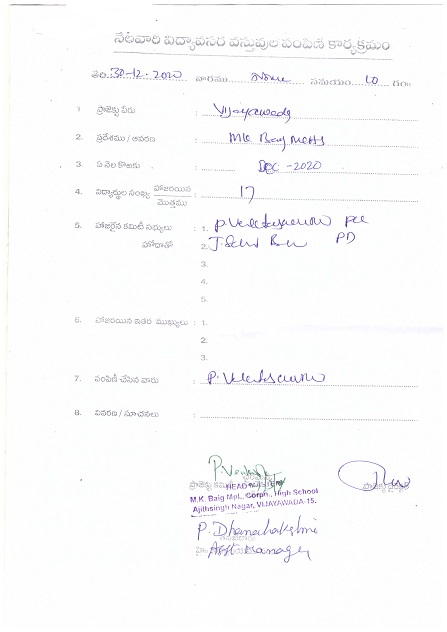 నెలవారి విద్యావసర వస్తువుల పంపిణి కార్యక్రమం
తేది. 30-12-2020 వారము సమయం 10 గం॥
1 ప్రాజెక్టు పేరు : Vijayawada
2. ప్రదేశము / ఆవరణ : MK Baig MCHS
3. ఏ నెల కొఱకు : DEC - 2020
4. విద్యార్థుల సంఖ్య హాజరయిన / మొత్తము : 17
5. హాజరైన కమిటీ సభ్యులు : 1. P.
హోదాతో 2. J. PD
3.
4.
5.
6. హాజరయిన ఇతర ముఖ్యులు : 1.
2.
3.
7. పంపిణి చేసిన వారు : P.
8. వివరణ / సూచనలు :
HEAD MASTER
M.K. Baig Mpl. Corpn., High School
Ajithsingh Nagar, VIJAYAWADA-15.
P. Dhanalakshmi
Asst Manager